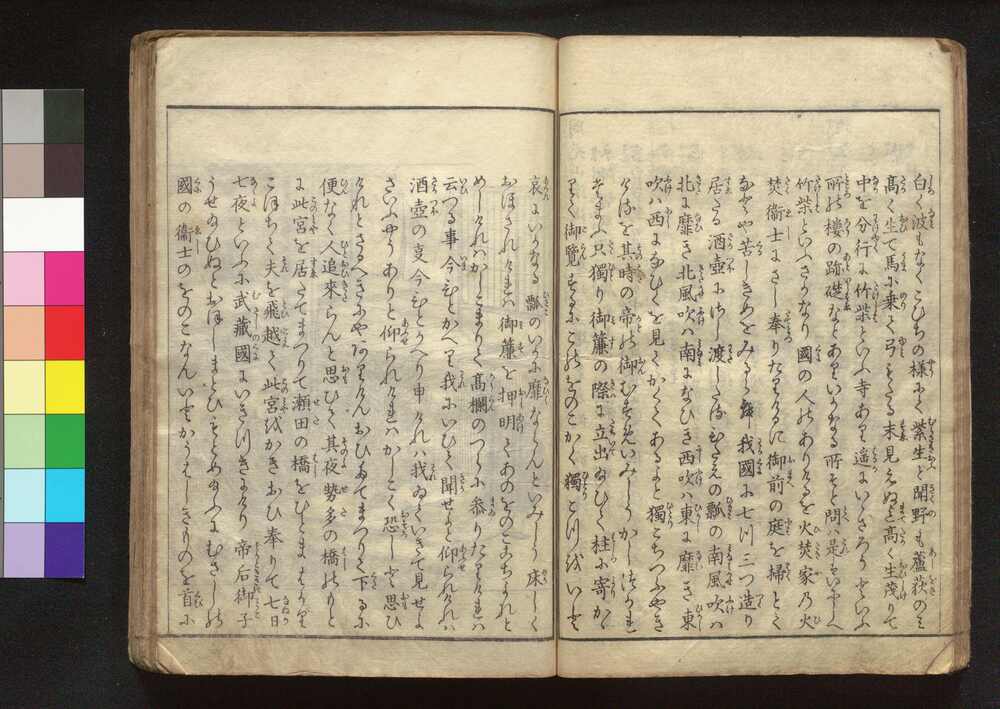 白く波もなくこひちの様にて紫生と聞野も蘆荻のミ
高く生て馬に乗て弓もたる末見えぬまて高く生茂りて
中を分行に竹柴といふ寺あり遥にいゝさろうといふ
所の楼の跡礎なとありいかなる所そと問ハ是ハいにしへ
竹柴といふさかなり國の人のありけるを火焚家乃火
焚衛士にさし奉りたりけるに御前の庭を掃とて
なとや苦しきめをみるらん我國に七川三つ造り
居たる酒壺にさし渡したるひたえの瓢の南風吹ハ
北に靡き北風吹ハ南になひき西吹ハ東に靡き東
吹ハ西になひくを見てかくてあるよと獨こちつふやき
けるを其時の帝の御むすめいみしうかしつかれ
給ふ只獨り御簾の際に立出給ひて柱に寄かゝ
りて御覧するにこのをのこかく獨こつをいと
哀にいかなる瓢のいかに靡ならんといみしう床しく
おほされけれハ御簾を押明てあのをのここちよれと
めしけれハかしこまりて高欄のつらに参りたりけれハ
云つる事今ひとかへり我にいひて聞せよと仰られけれハ
酒壺の㕝今ひとかへり申けれハ我ゐていきて見せよ
さいふやうありと仰られけれハかしこく恐しと思ひ
けれとさるへきにやありけんおひたてまつりて下るに
便なく人追来らんと思ひて其夜勢多の橋のもと
に此宮を居たてまつりて瀬田の橋をひとまはかり
こほちて夫を飛越て此宮をかきおひ奉りて七日
七夜といふに武藏國にいき付にけり 帝后御子
うせ給ひぬとおほしまとひもとめ給ふにむさしの
國の衛士のをのこなんいとかうはしきものを首に